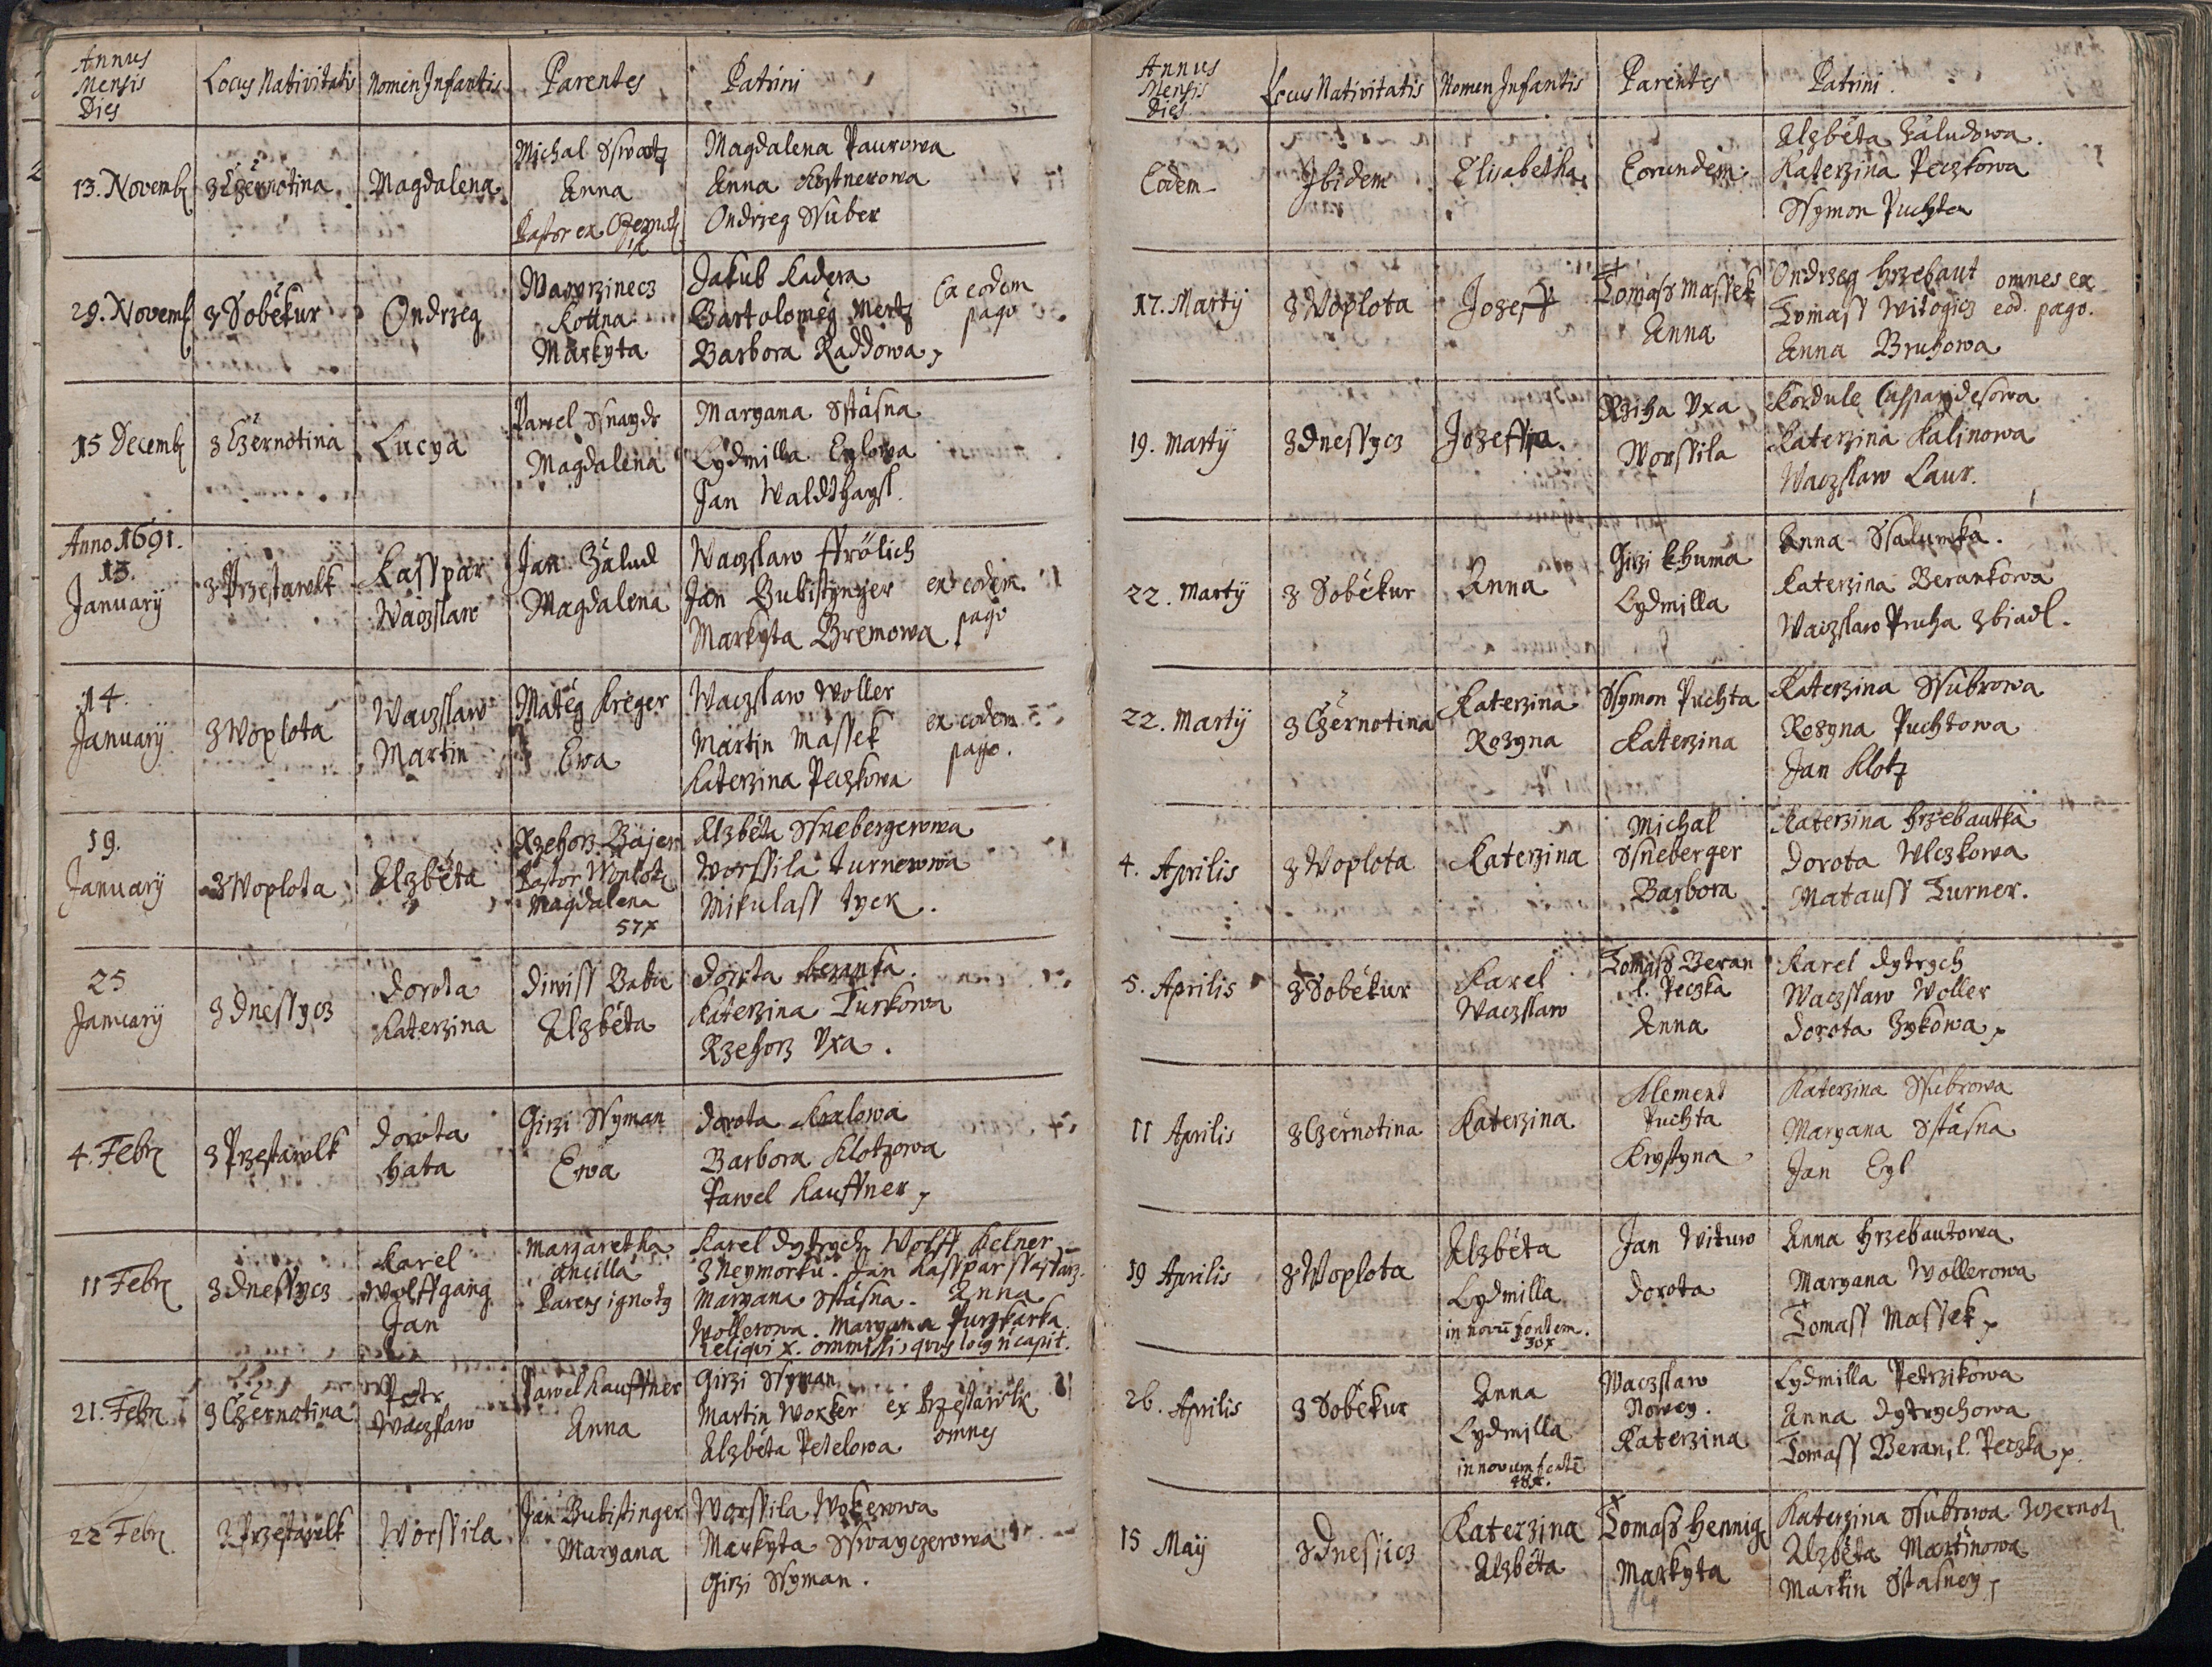 Annus
Mensis
Dies
Locus Nativitatis
Nomen Infantis
Parentes
Patrini
13. Novemb
z Czernotina
Magdalena
Michal Sswatz
Anna
Pastor ex
Magdalena Paurowa
Anna Kostnerowa
Ondrzeg Ssuber
29. Novemb
z Sobėkur
Ondrzeg
Wawrzinecz
Kottna
Markyta
Jakub Kadera
Bartolomėg Mertz
Barbora Raddowa
ex eodem
pago
15 Decemb
z Czernotina
Lucya
Pawel Ssnaydr
Magdalena
Maryana Sstäsna
Lydmilla Eylowa
Jan Waldthaysl.
Anno 1691.
13.
January
z Przestawlk
Kasspar
Waczslaw
Jan Zälud
Magdalena
Waczslaw Ffrölich
Jan Bubistynger
Markyta Bremowa
ex eodem
pago
14.
January
z Woplota
Waczslaw
Martin
Matėg Kreger
Ewa
Waczslaw Woller
Martin Massek
Katerzina Peczkowa
ex eodem
pago.
19.
January
z Woplota
Alzbėta
Rzehorz Bajer
Pastor Woplotz
Magdalena
57x
Alzbėta Ssnebergerowa
Worssila Turnerowa
Mikulass Tyck.
25
January
z Dnessycz
Dorota
Katerzina
Diwiss Baba
Alzbėta
Dorota Beranka.
Katerzina Turkowa
Rzehorz Vxa.
4. Febr
z Przestawlk
Dorota
hata
Girzi Ssyman
Ewa
Dorota Kralowa
Barbora Klotzowa
Pawel Kauffner
11 Febr
z Dnessycz
Karel
Wolffgang
Jan
Margaretha
Ancilla
Parens ignotg
Karel Dytrych Wolff Kelner
z Neymorku. Jan Kasspar
Maryana Sstäsna. Anna
Wollerowa. Maryana Purgkarka.
Reliqui x. ommissi, quos locg n capit.
21. Febr
z Czernotina
Petr
Waczslaw
Pawel Kauffner
Anna
Girzi Ssyman
Martin Worker
Alzbėta Petelowa
ex Przestawlk
omnes
22 Febr
z Przestawlk
Worssila
Jan Bubistinger
Maryana
Worssila
Markyta Sswayczerowa
Girzi Ssyman.
Annus
Mensis
Dies
Locus Nativitatis
Nomen Infantis
Parentes
Patrini.
Eodem
Ibidem
Elisabetha
Eorundem
Alzbėta Zäludowa.
Katerzina Peczkowa
Ssymon Puchta
17. Martÿ
z Woplota
Jozeff
Tomass Massek
Anna
Ondrzeg Hrzebaut
Tomass Witogicz
Anna Bruhowa
omnes ex
eod. pago.
19. Martÿ
z Dnessycz
Jozeffa.
Rziha Vxa
Worssila
Kordule
Katerzina Kalinowa
Waczslaw Laur.
22. Martÿ
z Sobėkur
Anna
Girzi Chuma
Lydmilla
Anna Ssalumka.
Katerzina Berankowa
Waczslaw Pruha z biadl.
22. Martÿ
z Czernotina
Katerzina
Rozyna
Ssymon Puchta
Katerzina
Katerzina Ssubrowa
Rozyna Puchtowa
Jan Klotz
4. Aprilis
z Woplota
Katerzina
Michal
Ssneberger
Barbora
Katerzina Hrzebautka
Dorota Wlczkowa
Matauss Turner.
5. Aprilis
z Sobėkur
Karel
Waczslaw
Tomass Beran
l. Peczka
Anna
Karel Dytrych
Waczslaw Woller
Dorota Zykowa
11 Aprilis
z Czernotina
Katerzina
Klement
Puchta
Krystyna
Katerzina Ssubrowa
Maryana Sstäsna
Jan Eyl
19 Aprilis
z Woplota
Alzbėta
Lydmilla
in novū fontem.
30x
Jan Wituw
Dorota
Anna Hrzebautowa
Maryana Wollerowa
Tomass Massek
26. Aprilis
z Sobėkur
Anna
Lydmilla
in novum fontē
48x.
Waczslaw
Nowey.
Katerzina
Lydmilla Petrzikowa
Anna Dytrychowa
Tomass Beran l. Peczka
15 Maÿ
z Dnessicz
Katerzina
Alzbėta
Tomass Hennig
Markyta
Katerzina Ssubrowa
Alzbėta Martinowa
Martin Sstasney